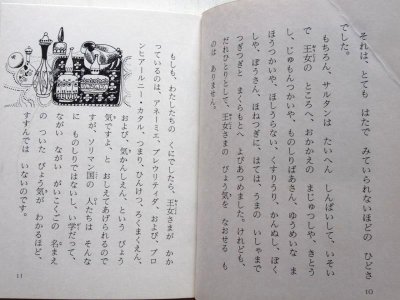 それは、とても はたで みていられないほどの ひどさ
でした。
もちろん、サルタンは たいへん しんぱいして、いそい
で 王女の ところへ、おかかえの まじゅつしや、きとう
し、じゅもんつかいや、ものしりばあさん、ゆうめいな ま
ほうつかいや、うらないし、くすりうり、かんぬし、ぼく
しや、ぼうさん、ほねつぎに、はては、うまの いしゃまで
つぎつぎと まくらもとへ よびあつめました。けれども、
だれひとりとして、王女さまの びょう気を なおせる も
のは ありません。
10
もしも、わたしたちの くにでしたら、王女さまが かか
っているのは、アネーミエ、プレウリティダ、および、ブロ
ンヒアールニー・カタル、つまり、ひんけつ、ろくまくえん、
および、気かんしえん、という びょう
気ですよ、と おしえてあげられるので
すが、ソリマン国の 人たちは そんな
に ものしりではないし、い学だって、
ながい ながい がいこくごの 名まえ
の ついた びょう気が わかるほど、
すすんでは いないのです。
11